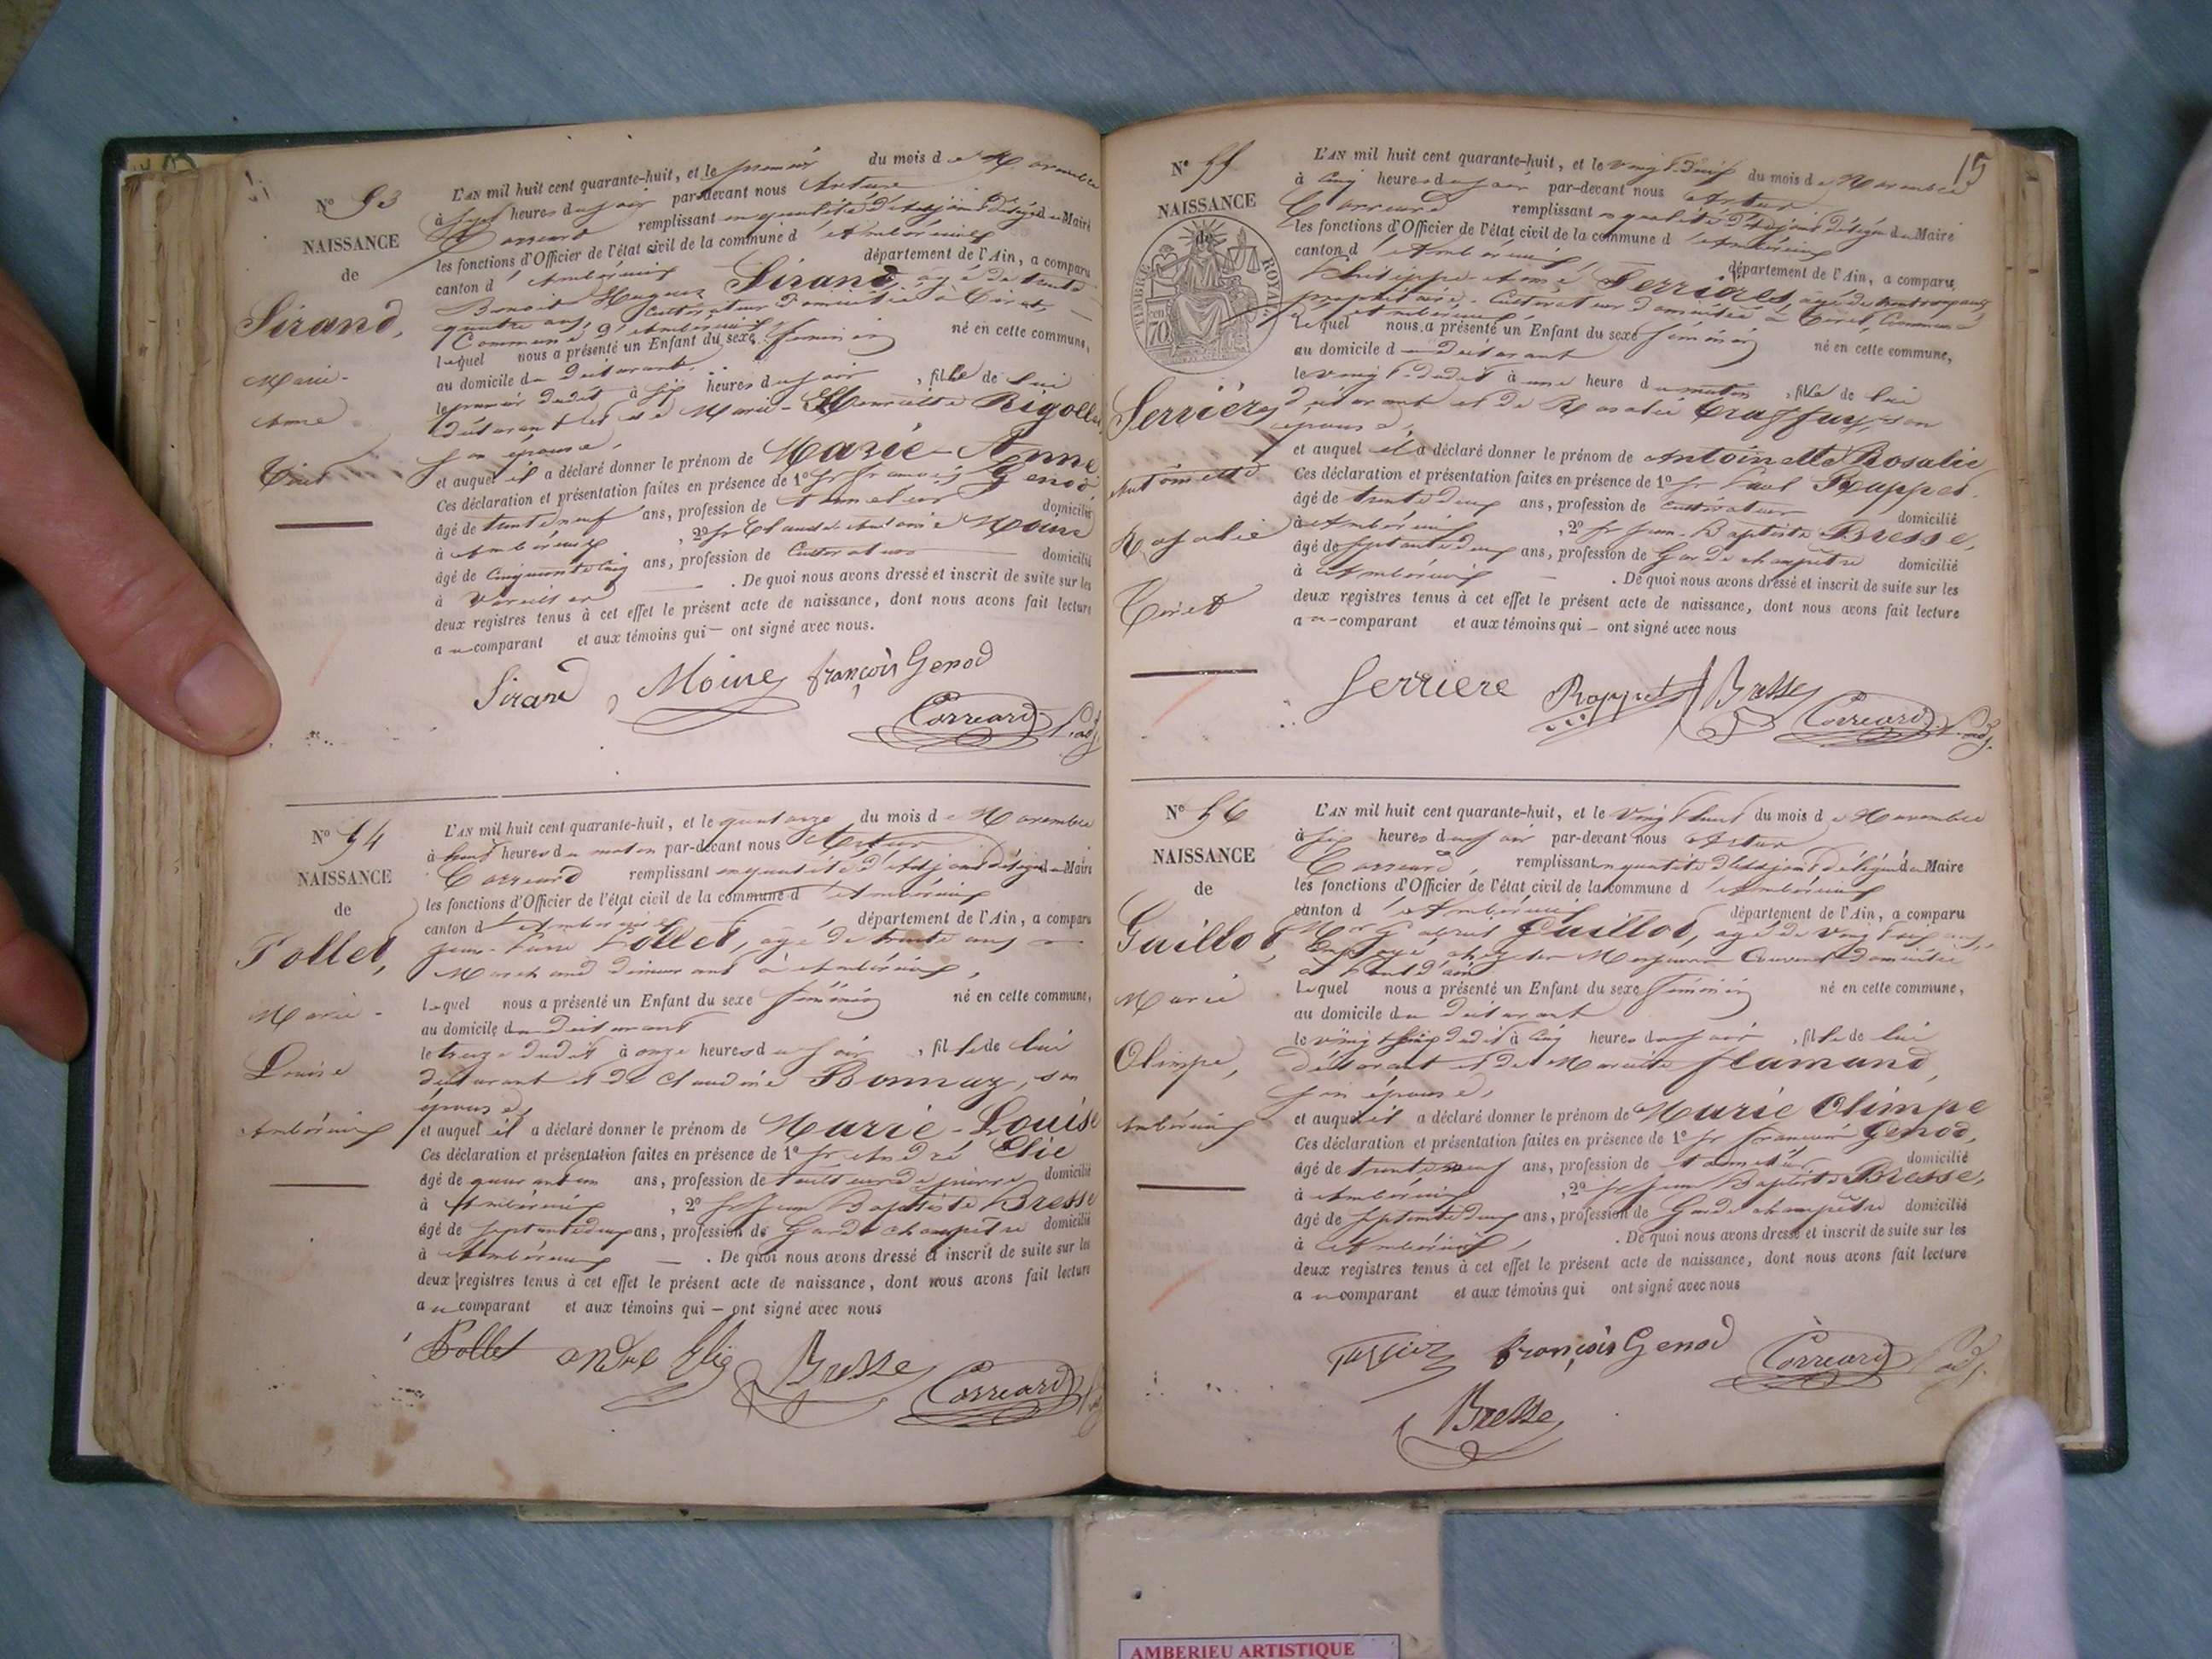 N° 53
NAISSANCE
de
Sirand,
Marie-
Anne
Tiret
L'AN mil huit cent quarante-huit, et le premier du mois de Novembre
à sept heures du soir par-devant nous Artur
Correard remplissant en qualité d'Adjoint délégué du Maire
les fonctions d'Officier de l'état civil de la commune d'Ambérieux
canton d'Ambérieux département de l'Ain, a comparu
Benoit Hugues Sirand, âgé de trente
quatre ans, Cultivateur domicilié à Tiret,
Commune d'Ambérieux
lequel nous a présenté un Enfant du sexe féminin né en cette commune,
au domicile du Déclarant
le premier dudit à six heures du soir, fille de lui
déclarant et de Marie-Henriette Rigollet
son épouse,
et auquel il a déclaré donner le prénom de Marie-Anne
Ces déclaration et présentation faites en présence de 1° Sr François Genod
âgé de trente neuf ans, profession de tonnelier domicilié
à Ambérieux, 2° Sr Claude Moine
âgé de Cinquante cinq ans, profession de Cultivateur domicilié
à . De quoi nous avons dressé et inscrit de suite sur les
deux registres tenus à cet effet le présent acte de naissance, dont nous avons fait lecture
au comparant et aux témoins qui — ont signé avec nous.
Sirand Moine françois Genod
Correard adj.
N° 54
NAISSANCE
de
Follet,
Marie-
Louise
Ambérieux
L'AN mil huit cent quarante-huit, et le quatorze du mois de Novembre
à huit heures du matin par-devant nous Artur
Correard remplissant en qualité d'Adjoint délégué du Maire
les fonctions d'Officier de l'état civil de la commune d'Ambérieux
canton d'Ambérieux département de l'Ain, a comparu
Jean-Pierre Follet, âgé de trente ans
Marchand demeurant à Ambérieux,
lequel nous a présenté un Enfant du sexe féminin né en cette commune,
au domicile du Déclarant
le treize dudit à onze heures du soir, fille de lui
déclarant et de Claudine Bonnaz, son
épouse,
et auquel il a déclaré donner le prénom de Marie-Louise
Ces déclaration et présentation faites en présence de 1° Sr André Elie
âgé de quarante un ans, profession de tailleur de pierre domicilié
à Ambérieux, 2° Sr Jean Baptiste Bresse
âgé de septante deux ans, profession de Garde champêtre domicilié
à Ambérieux — . De quoi nous avons dressé et inscrit de suite sur les
deux registres tenus à cet effet le présent acte de naissance, dont nous avons fait lecture
au comparant et aux témoins qui — ont signé avec nous
Follet andré Elie Bresse Correard
15
N° 55
NAISSANCE
de
TIMBRE ROYAL
cen 70
Serrières
Antoinette
Rosalie
Tiret
L'AN mil huit cent quarante-huit, et le vingt-deux du mois de Novembre
à cinq heures du soir par-devant nous Artur
Correard remplissant en qualité d'Adjoint délégué du Maire
les fonctions d'Officier de l'état civil de la commune d'Ambérieux
canton d'Ambérieux département de l'Ain, a comparu
Serrières, âgé de trente ans
propriétaire-Cultivateur domicilié à Tiret, Commune
d'Ambérieux
lequel nous a présenté un Enfant du sexe féminin né en cette commune,
au domicile du déclarant
le vingt-deux dudit à une heure du matin, fille de lui
déclarant et de Rosalie son
épouse,
et auquel il a déclaré donner le prénom de Antoinette Rosalie
Ces déclaration et présentation faites en présence de 1° Sr Paul Rappet
âgé de trente deux ans, profession de Cultivateur domicilié
à Ambérieux, 2° Sr Jean-Baptiste Bresse,
âgé de septante deux ans, profession de Garde champêtre domicilié
à Ambérieux — . De quoi nous avons dressé et inscrit de suite sur les
deux registres tenus à cet effet le présent acte de naissance, dont nous avons fait lecture
au comparant et aux témoins qui — ont signé avec nous
Serriere Rappet Bresse Correard adj.
N° 56
NAISSANCE
de
Guillot,
Marie
Olimpe,
Ambérieux
L'AN mil huit cent quarante-huit, et le vingt huit du mois de Novembre
à six heures du soir par-devant nous Artur
Correard, remplissant en qualité d'Adjoint délégué du Maire
les fonctions d'Officier de l'état civil de la commune d'Ambérieux
canton d'Ambérieux département de l'Ain, a comparu
Guillot, âgé de vingt six ans,
Employé chez domicilié
à Pont d'ain
lequel nous a présenté un Enfant du sexe féminin né en cette commune,
au domicile du Déclarant
le vingt dudit à cinq heures du soir, fille de lui
Déclarant et de Mariette flamand,
son épouse,
et auquel il a déclaré donner le prénom de Marie Olimpe
Ces déclaration et présentation faites en présence de 1° Sr François Genod,
âgé de trente neuf ans, profession de tonnelier domicilié
à Ambérieux, 2° Sr Jean Baptiste Bresse,
âgé de septante deux ans, profession de Garde champêtre domicilié
à Ambérieux, . De quoi nous avons dressé et inscrit de suite sur les
deux registres tenus à cet effet le présent acte de naissance, dont nous avons fait lecture
au comparant et aux témoins qui ont signé avec nous
françois Genod Correard adj.
Bresse
AMBERIEU ARTISTIQUE